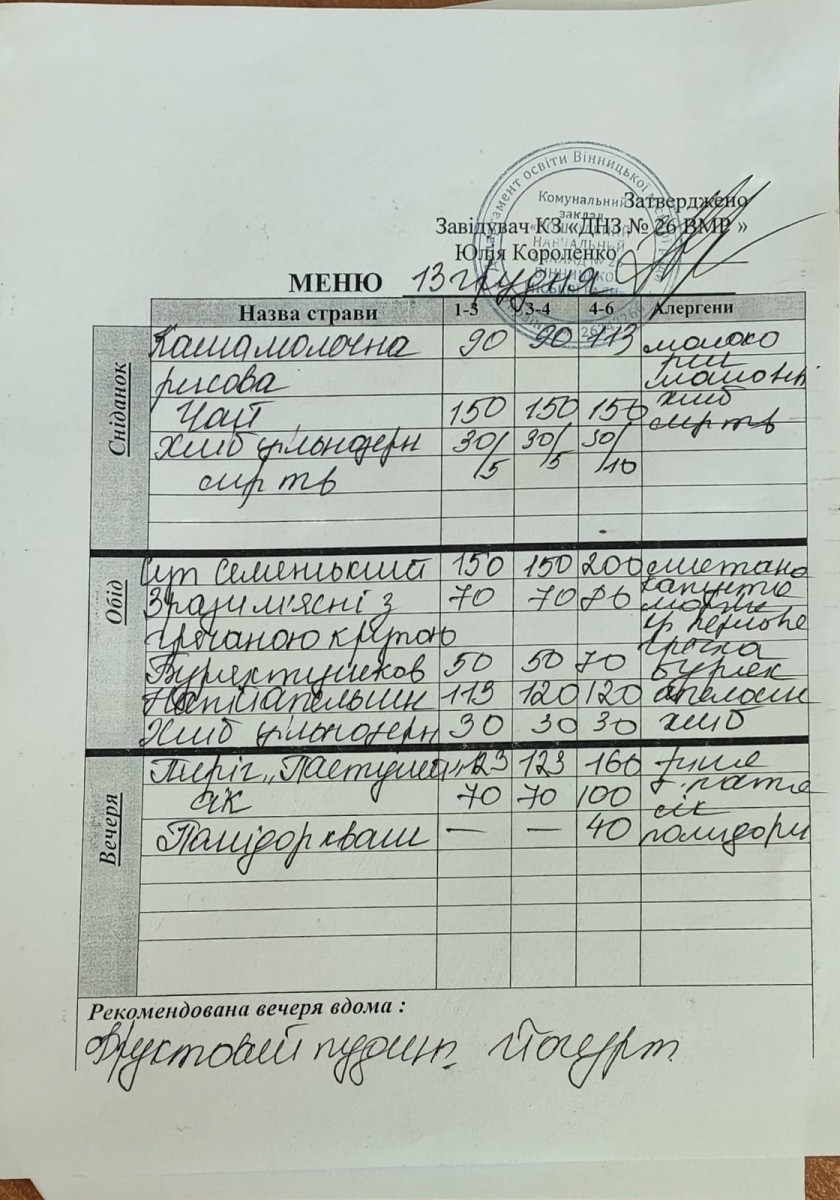 Департамент освіти Вінницької міської
Комунальний
заклад
Затверджено
Завідувач КЗ «ДНЗ № 26 ВМР »
Юлія Короленко
МЕНЮ 13 грудня
Назва страви 1-3 3-4 4-6 Алергени
Сніданок
Каша молочна 90 90 113 молоко
рисова рис
Чай 150 150 150 хліб
Хліб цільнозерн 30/5 30/5 30/10 сир тв
сир тв
Обід
Суп Селенський 150 150 200 сметана
Зрази м'ясні з 70 70 86 капуста
гречаною крупою гречка
Буряк тушков 50 50 70 буряк
Напій апельсин 113 120 120 апельсин
Хліб цільнозерн 30 30 30 хліб
Вечеря
Пиріг „Пастуший" 123 123 160
сік 70 70 100 сік
Помідор кваш — — 40 помидори
Рекомендована вечеря вдома :
Фруктовий пудинг. Йогурт.